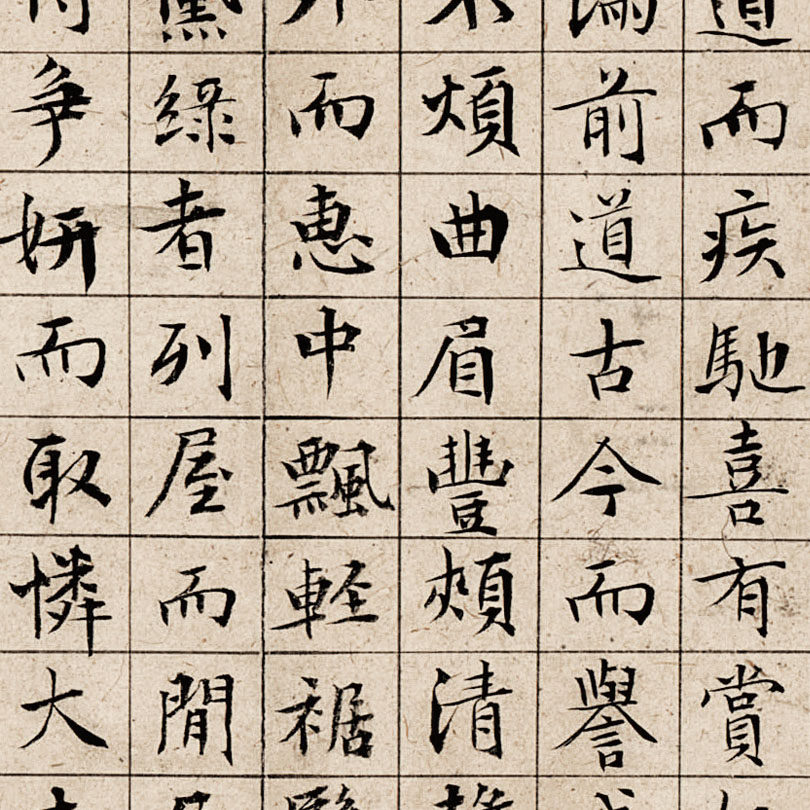 道而疾馳喜有賞
滿前道古今而譽
不煩曲眉豐頰清
外而惠中飄輕裾
黛綠者列屋而閒
爭妍而取憐大